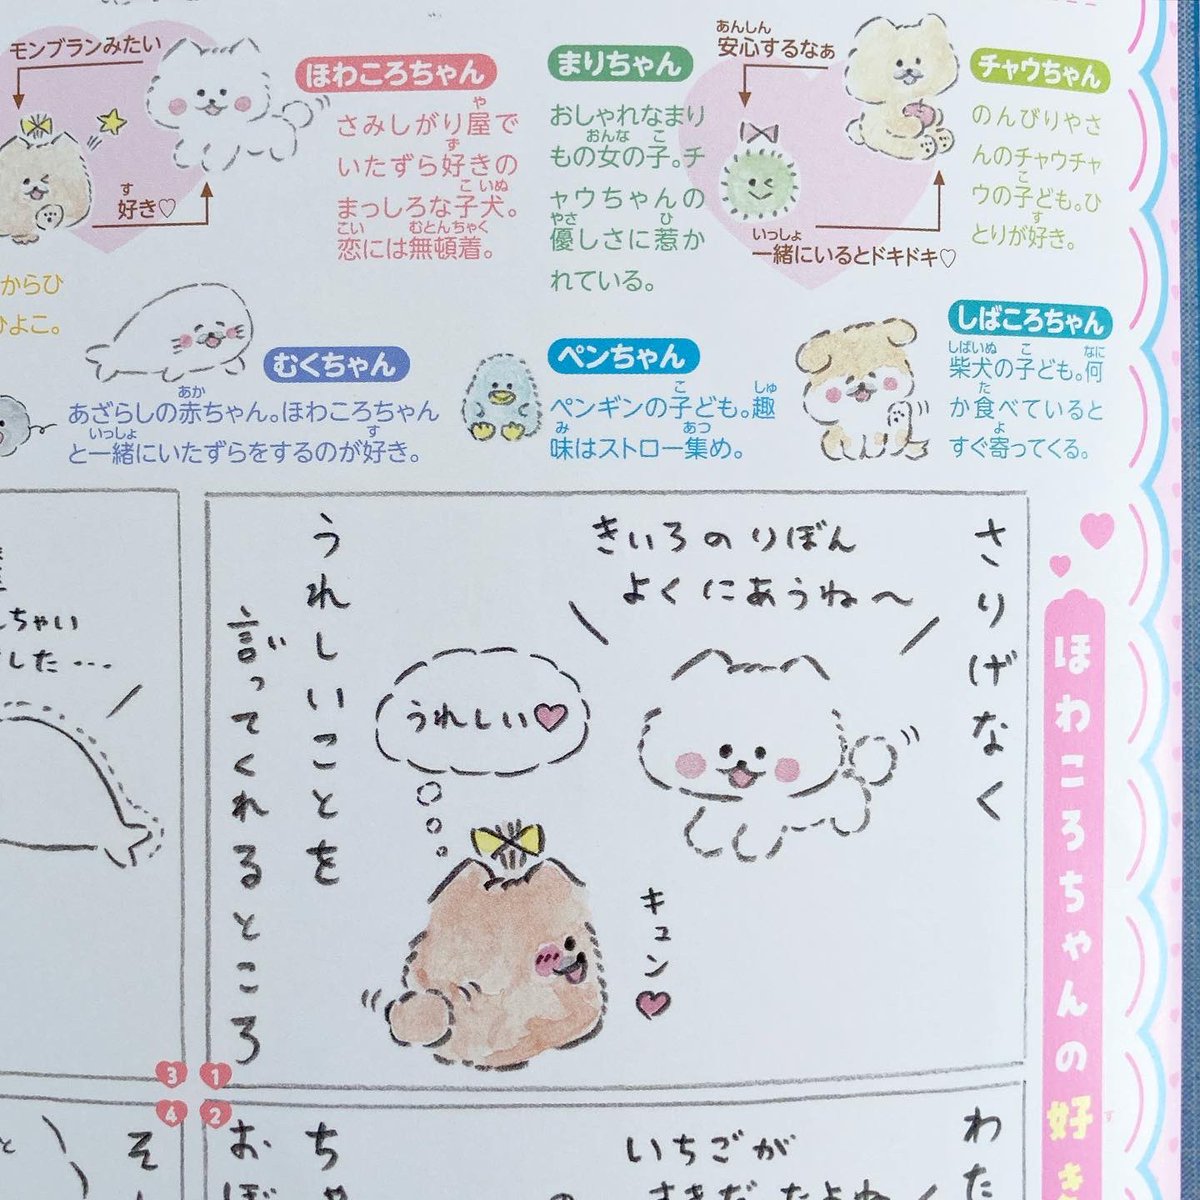 モンブランみたい
好き♡
す
ほわころちゃん
さみしがり屋で
や
いたずら好きの
ず
まっしろな子犬。
こ いぬ
恋には無頓着。
こい むとんちゃく
まりちゃん
おしゃれなまり
もの女の子。チ
おんな こ
ャウちゃんの
優しさに惹か
やさ ひ
れている。
安心するなぁ
あんしん
一緒にいるとドキドキ♡
いっしょ
チャウちゃん
のんびりやさ
んのチャウチャ
ウの子ども。ひ
こ
とりが好き。
す
からひ
ひよこ。
むくちゃん
あざらしの赤ちゃん。ほわころちゃん
あか
と一緒にいたずらをするのが好き。
いっしょ す
ペンちゃん
ペンギンの子ども。趣
こ しゅ
味はストロー集め。
み あつ
しばころちゃん
柴犬の子ども。何
しばいぬ こ なに
か食べていると
た
すぐ寄ってくる。
よ
ほわころちゃんの好き
す
さりげなく
きいろのりぼん
よくにあうね〜
うれしい♡
キュン♡
うれしいことを
言ってくれるところ
1
2
わた
いちごが
ちゃ
おぼ
3
ちゃい
した…
4
そ